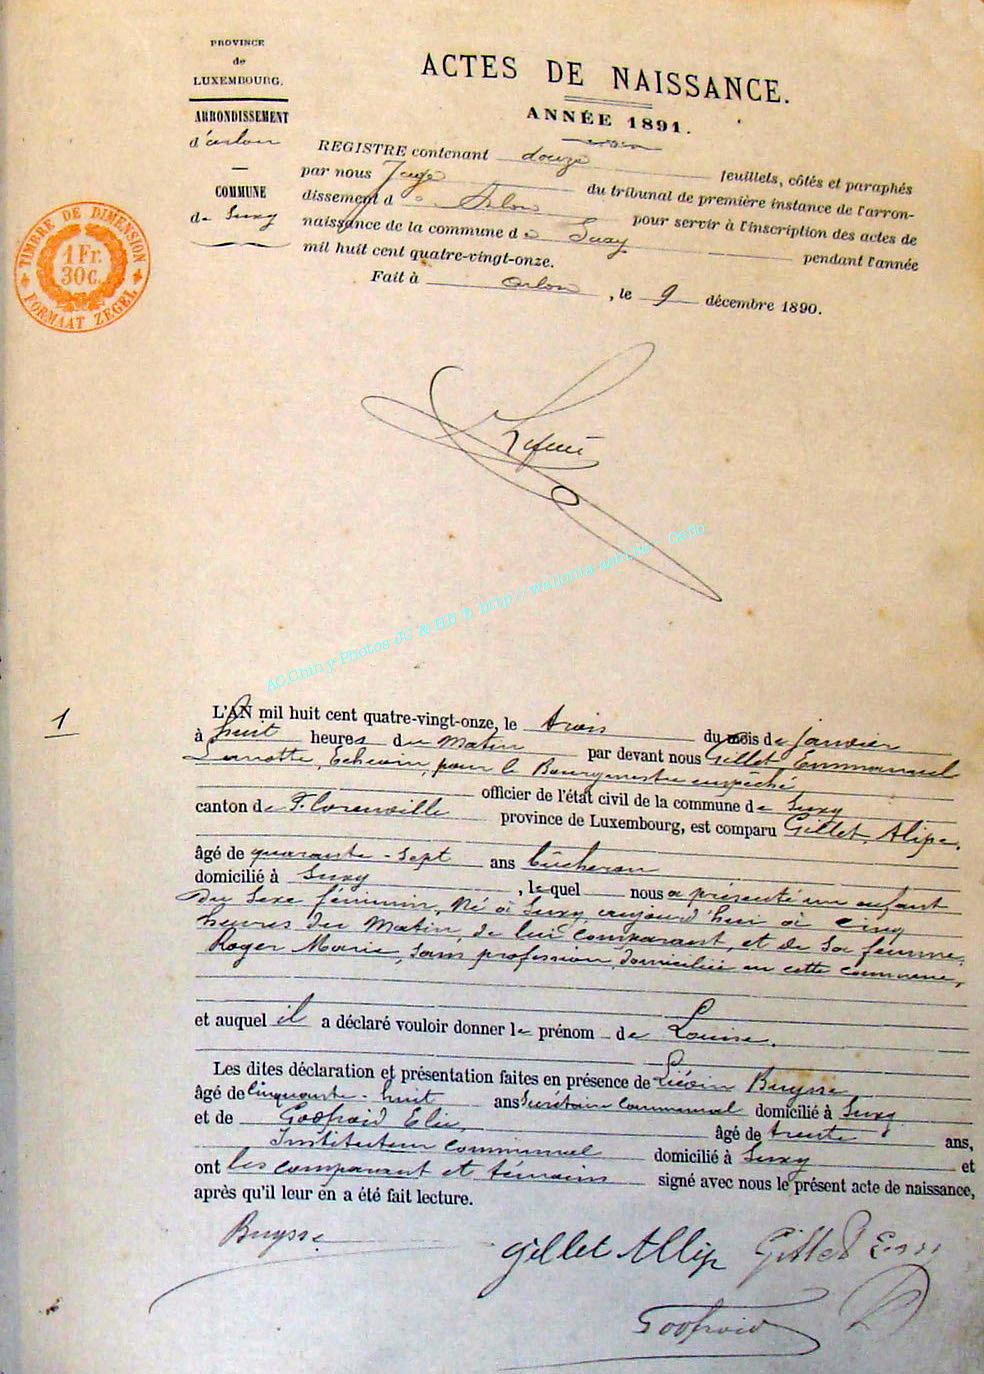 PROVINCE
de
LUXEMBOURG.
ARRONDISSEMENT
d'arlon
COMMUNE
de Suxy
TIMBRE DE DIMENSION
1 Fr.
30c.
FORMAAT ZEGEL
ACTES DE NAISSANCE.
ANNÉE 1891.
REGISTRE contenant douze feuillets, côtés et paraphés
par nous Juge du tribunal de première instance de l'arron-
dissement d'Arlon pour servir à l'inscription des actes de
naissance de la commune de Suxy pendant l'année
mil huit cent quatre-vingt-onze.
Fait à Arlon, le 9 décembre 1890.
AC.Chiny-Photos JC & HB h http//wallonia-asbl.be - Geflo
1
L'AN mil huit cent quatre-vingt-onze, le trois du mois de janvier
à huit heures du matin par devant nous Gillet Emmanuel
Lamotte, Echevin, pour le Bourgmestre empêché,
officier de l'état civil de la commune de Suxy
canton de Florenville province de Luxembourg, est comparu Gillet, Alipe.
âgé de quarante-sept ans bûcheron
domicilié à Suxy, lequel nous a présenté un enfant
du sexe féminin, Né à Suxy, aujourd'hui à cinq
heures du Matin, de lui comparant, et de sa femme,
Roger Marie, sans profession, domiciliée en cette commune,
et auquel il a déclaré vouloir donner le prénom de Louise.
Les dites déclaration et présentation faites en présence de Liévin Buysse
âgé de cinquante-huit ans Secrétaire communal domicilié à Suxy
et de Godfroid Elie, âgé de trente ans,
Instituteur communal domicilié à Suxy et
ont les comparant et témoins signé avec nous le présent acte de naissance,
après qu'il leur en a été fait lecture.
Buysse
Gillet Allip Gillet Em
Godfroid